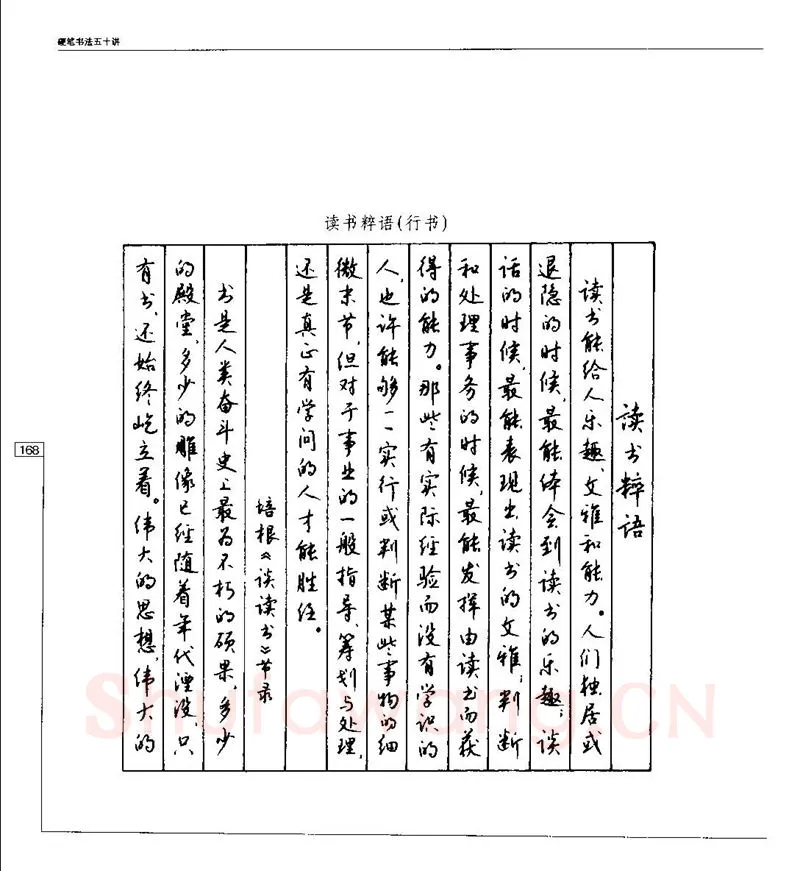 硬笔书法五十讲
读书粹语(行书)
读书粹语
读书能给人乐趣、文雅和能力。人们独居或
退隐的时候,最能体会到读书的乐趣;谈
话的时候,最能表现出读书的文雅;判断
和处理事务的时候,最能发挥由读书而获
得的能力。那些有实际经验而没有学识的
人,也许能够一一实行或判断某些事物的细
微末节,但对于事业的一般指导、筹划与处理,
还是真正有学问的人才能胜任。
培根《谈读书》节录
书是人类奋斗史上最为不朽的硕果,多少
的殿堂,多少的雕像已经随着年代湮没,只
有书,还始终屹立着。伟大的思想,伟大的
168
Shufawang.CN